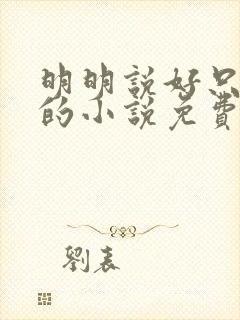 明明說好只
的小說免費
劉表